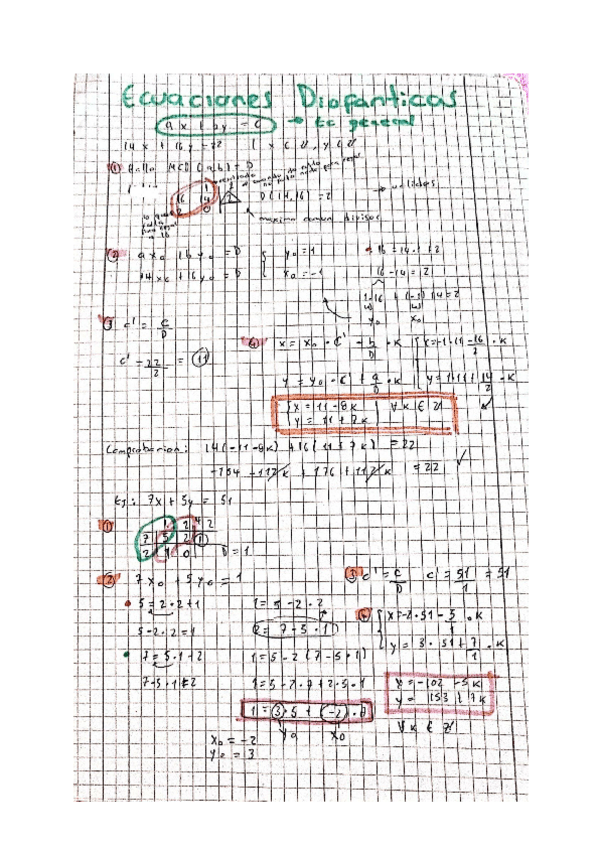 Ecuaciones Diofanticas
ax + by = c → Ec general
14x + 16y = 22 | x ∈ Z, y ∈ Z
① Hallo MCD (a,b) = D
1
16 14
2 0
D(14,16) = 2
→ validos
maximo comun divisor
② ax₀ + by₀ = D
14x₀ + 16y₀ = D
y₀ = 1
x₀ = -1
16 = 14·1 + 2
16 - 14 = 2
1·16 + (-1)14 = 2
y₀ x₀
③ c' = c/D
c' = 22/2 = 11
④ x = x₀ · c' - b/D · k
x = -1·11 - 16/2 · k
y = y₀ · c' + a/D · k
y = 1·11 + 14/2 · k
x = -11 - 8k ∀k ∈ Z
y = 11 + 7k
Comprobacion: 14(-11-8k) + 16(11+7k) = 22
-154 - 112k + 176 + 112k = 22 ✓
Ej: 7x + 5y = 51
①
1 2 2
7 5 2 1
2 1 0
D = 1
② 7x₀ + 5y₀ = 1
5 = 2·2+1
5-2·2 = 1
7 = 5·1+2
7-5·1 = 2
1 = 5-2·2
2 = 7-5·1
1 = 5-2(7-5·1)
1 = 5-2·7+2·5·1
1 = 3·5 + (-2)·7
y₀ x₀
x₀ = -2
y₀ = 3
③ c' = c/D c' = 51/1 = 51
④ x = -2·51 - 5/1 · k
y = 3·51 + 7/1 · k
x = -102 - 5k
y = 153 + 7k
∀k ∈ Z